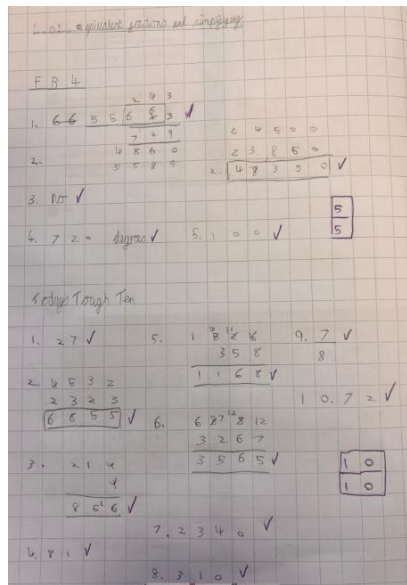 L.O: equivalent fractions and simplifying
F R 4
2 4 3
1. 5 5 6 2 3
7 2 9
4 8 6 0
2.
5 5 8 9
2 4 5 0 0
2 3 8 5 0
2. 4 8 3 5 0
3. No
4. 7 2 = degrees
5. 1 0 0
5
5
Todays Tough Ten
1. 2 7
2. 4 5 3 2
2 3 2 3
6 8 5 5
3. 2 1 4
4
8 5 6
4. 8 1
5. 1 8 2 6
3 5 8
1 1 6 8
6. 6 8 7 8 12
3 2 6 7
3 5 6 5
7. 2 3 4 0
8. 3 1 0
9. 7
8
1 0. 7 2
1 0
1 0